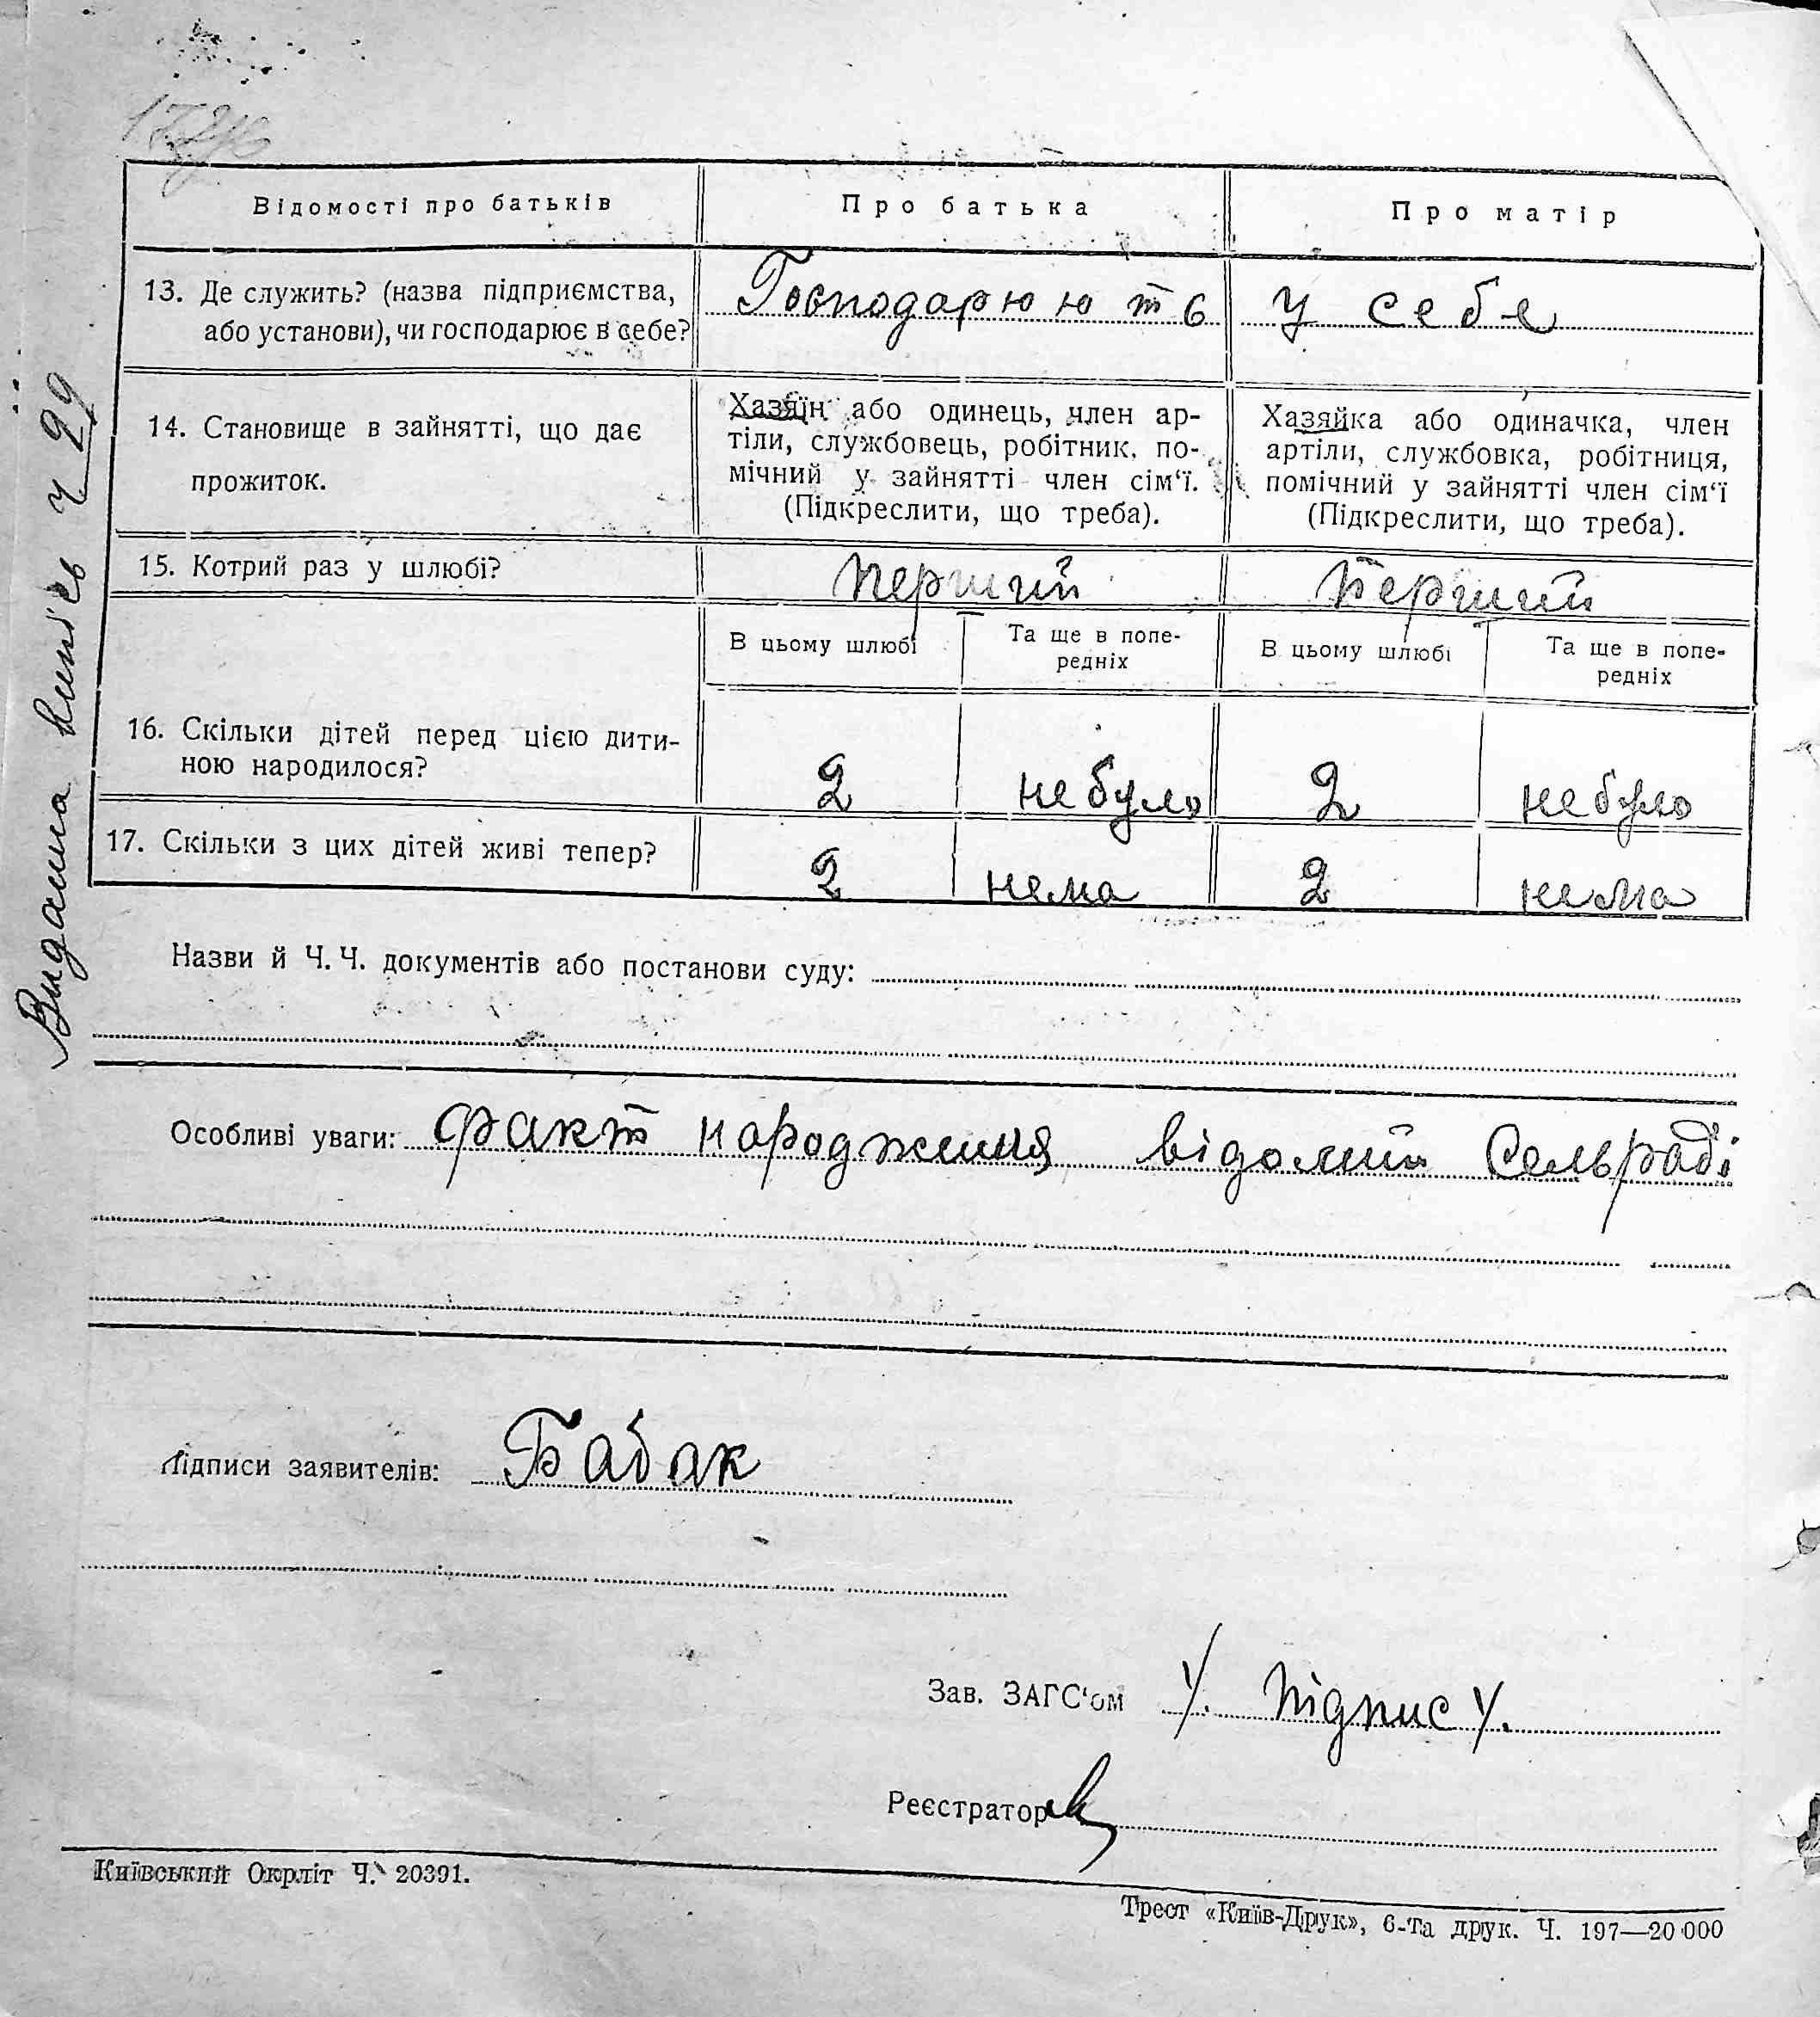 Відомості про батьків Про батька Про матір
13. Де служить? (назва підприємства, або установи), чи господарює в себе?
Господарюють у себе
14. Становище в зайнятті, що дає прожиток.
Хазяїн або одинець, член ар-
тіли, службовець, робітник, по-
мічний у зайнятті член сім'ї.
(Підкреслити, що треба).
Хазяйка або одиначка, член
артіли, службовка, робітниця,
помічний у зайнятті член сім'ї
(Підкреслити, що треба).
15. Котрий раз у шлюбі? перший перший
В цьому шлюбі Та ще в попе-
редніх
В цьому шлюбі Та ще в попе-
редніх
16. Скільки дітей перед цією дити-
ною народилося? 2 не було 2 не було
17. Скільки з цих дітей живі тепер? 2 нема 2 нема
Назви й Ч. Ч. документів або постанови суду:
Особливі уваги: факт народження відомий Сельраді
Підписи заявителів: Бабак
Зав. ЗАГС'ом Підпис
Реєстратор
Київський Окрліт Ч. 20391.
Трест «Київ-Друк», 6-та друк. Ч. 197—20 000
Видана